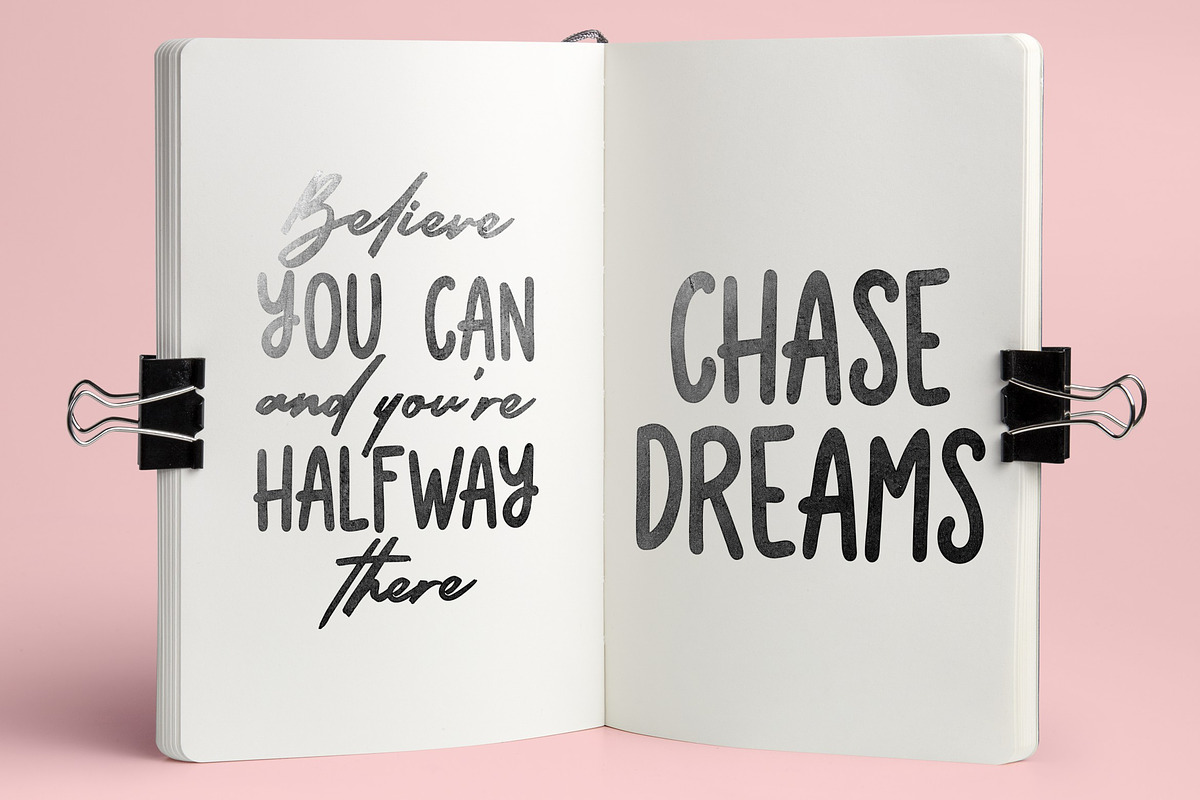 Believe
YOU CAN
and you're
HALFWAY
there
CHASE
DREAMS